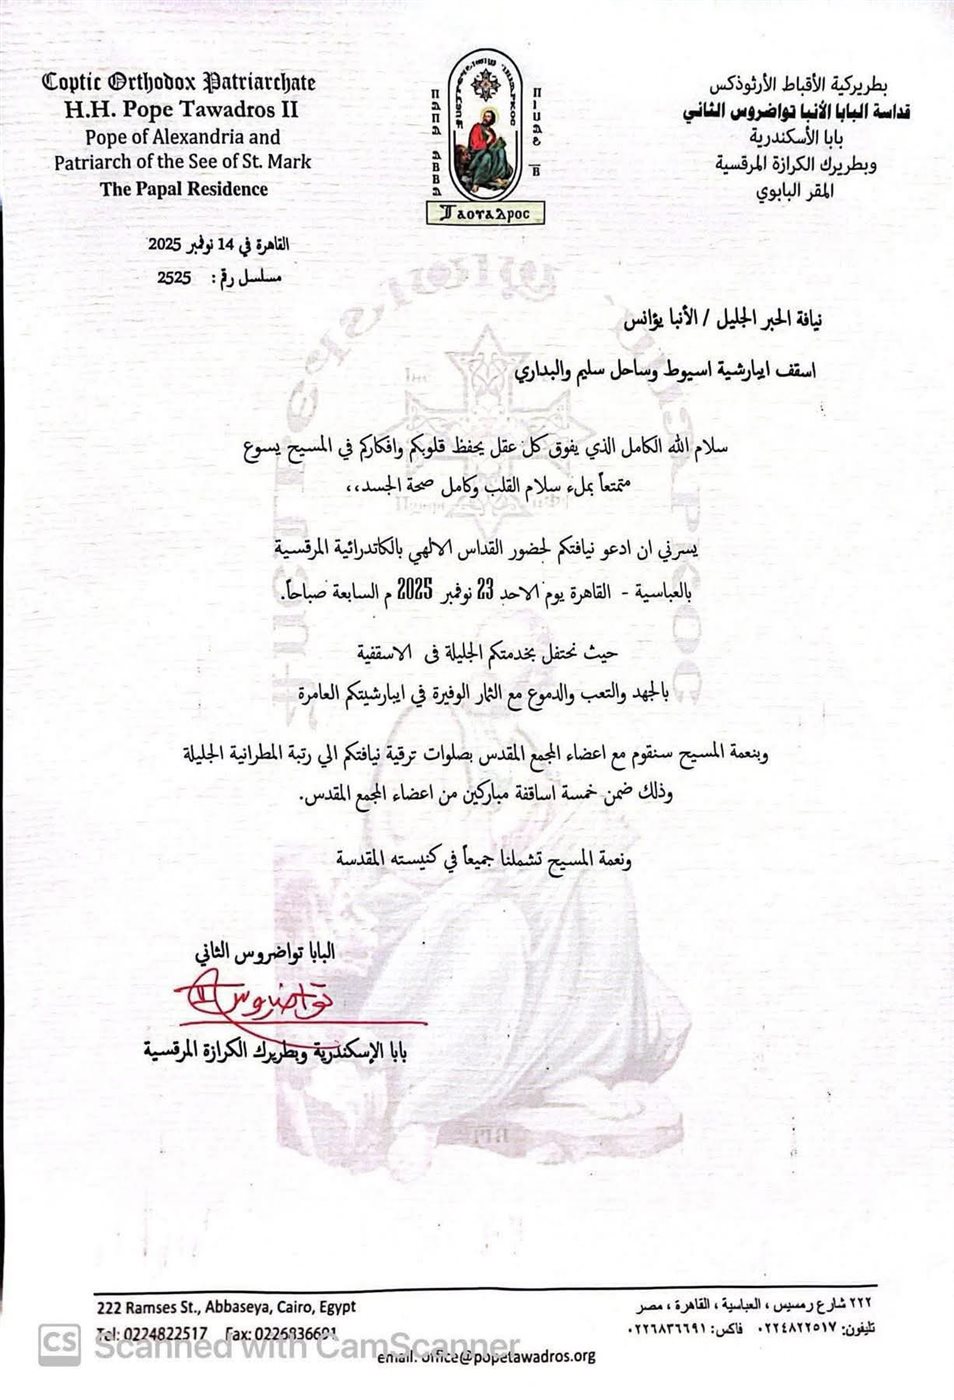 Coptic Orthodox Patriarchate
H.H. Pope Tawadros II
Pope of Alexandria and
Patriarch of the See of St. Mark
The Papal Residence
بطريركية الأقباط الأرثوذكس
قداسة البابا الأنبا تواضروس الثاني
بابا الأسكندرية
وبطريرك الكرازة المرقسية
المقر البابوي
القاهرة في 14 نوفمبر 2025
مسلسل رقم: 2525
نيافة الحبر الجليل / الأنبا يؤانس
اسقف ايبارشية اسيوط وساحل سليم والبداري
سلام الله الكامل الذي يفوق كل عقل يحفظ قلوبكم وافكاركم في المسيح يسوع
متمتعاً بملء سلام القلب وكامل صحة الجسد،،
يسرني ان ادعو نيافتكم لحضور القداس الالهي بالكاتدرائية المرقسية
بالعباسية - القاهرة يوم الاحد 23 نوفمبر 2025 م السابعة صباحاً.
حيث نحتفل بخدمتكم الجليلة فى الاسقفية
بالجهد والتعب والدموع مع الثمار الوفيرة في ايبارشيتكم العامرة
وبنعمة المسيح سنقوم مع اعضاء المجمع المقدس بصلوات ترقية نيافتكم الي رتبة المطرانية الجليلة
وذلك ضمن خمسة اساقفة مباركين من اعضاء المجمع المقدس.
ونعمة المسيح تشملنا جميعاً في كنيسته المقدسة
البابا تواضروس الثاني
تواضروس
بابا الإسكندرية وبطريرك الكرازة المرقسية
222 Ramses St., Abbaseya, Cairo, Egypt
Tel: 0224822517 Fax: 0226836691
٢٢٢ شارع رمسيس ، العباسية ، القاهرة ، مصر
تليفون: ٠٢٢٤٨٢٢٥١٧ فاكس: ٠٢٢٦٨٣٦٦٩١
email: office@popetawadros.org
CS Scanned with CamScanner